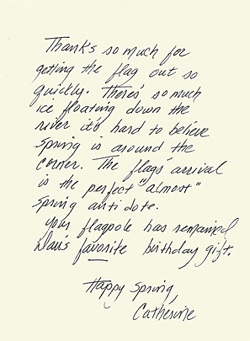 Thanks so much for
getting the flag out so
quickly. There's so much
ice floating down the
river it's hard to believe
spring is around the
corner. The flags' arrival
is the perfect "almost"
spring antidote.
Your flagpole has remained
favorite birthday gift.
Happy Spring,
Catherine